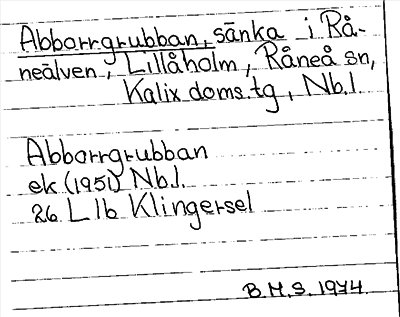 Abborrgrubban, sänka i Rå-
neälven, Lillåholm, Råneå sn,
Kalix doms.tg, Nb.l.
Abborrgrubban
ek (1951) Nb.l.
26 Llb Klingersel
B.M.S. 1974.